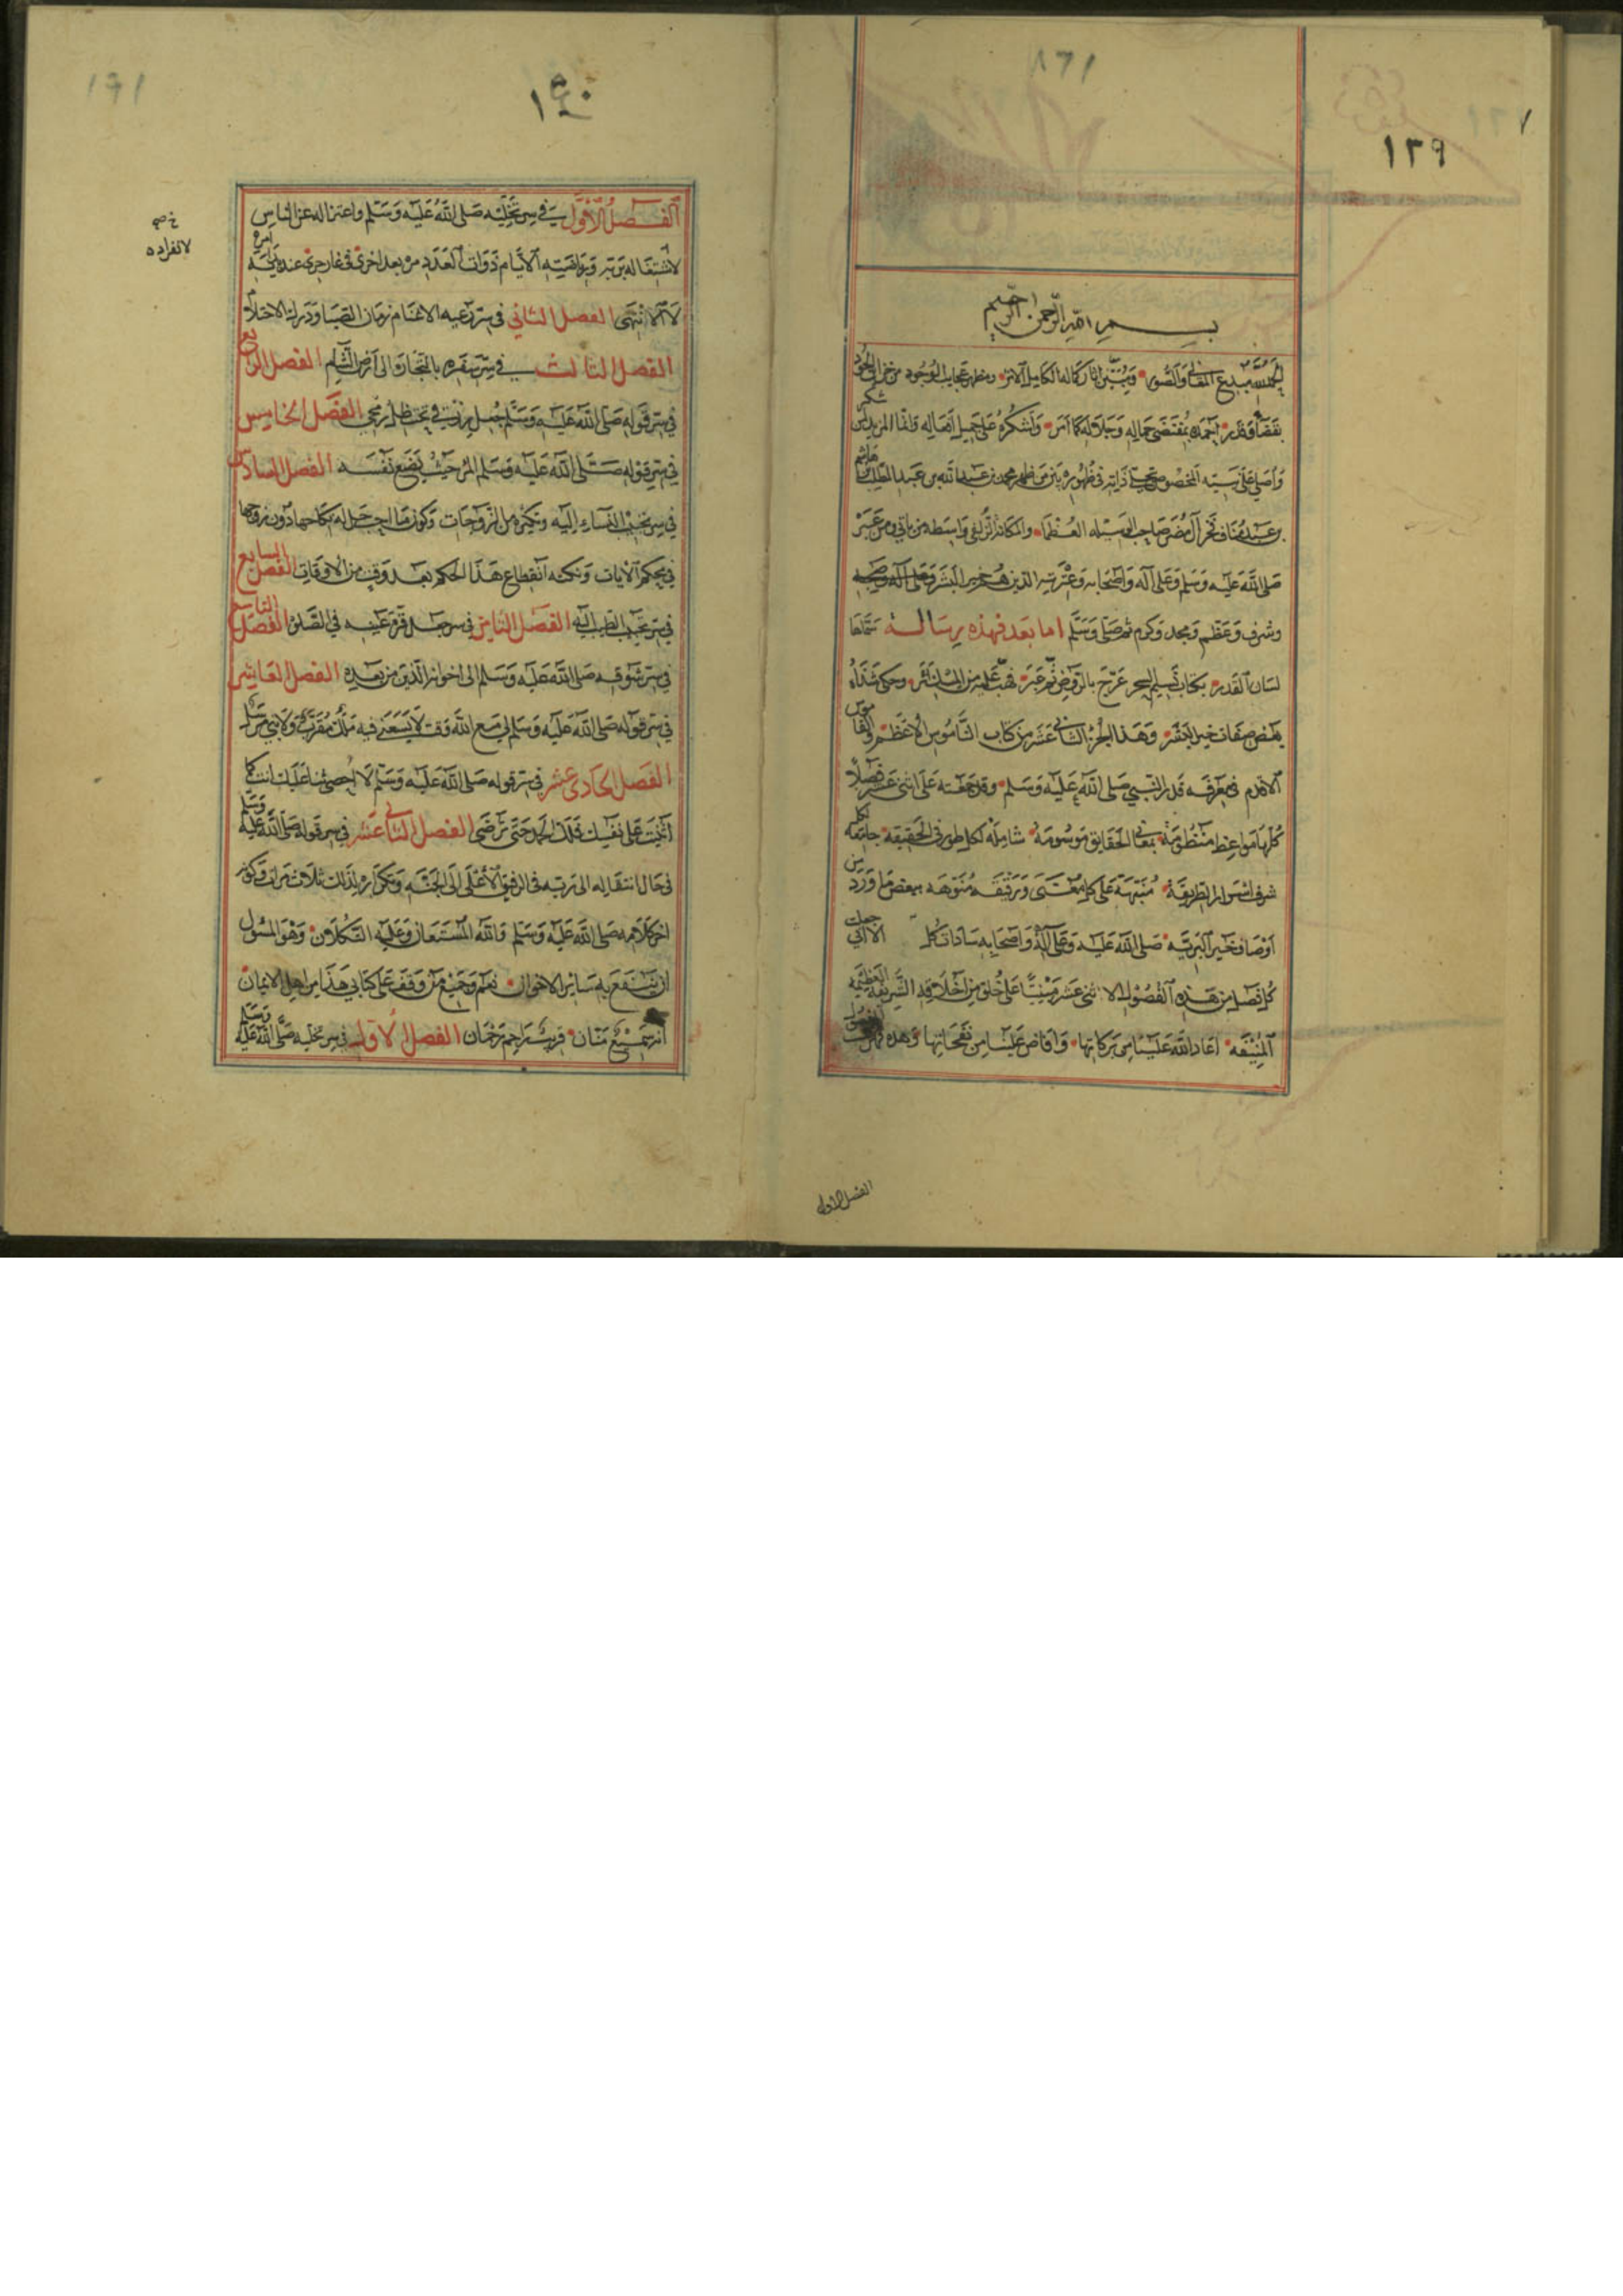 ١٣٩
بسم الله الرحمن الرحيم
الحمد لله مبدع المعاني والصور ومظهر عجايب الوجود من خزاين الجود
بقضاء وقدر احمده بمقتضى جماله وجلاله كما امر واشكره على جميل افعاله شكر
واصلي على نبيه المخصوص في ظهوره محمد بن عبد الله بن عبد المطلب بن هاشم
بن عبد مناف فخر آل مضر صاحب الوسيله العظما والمكانة الزلفى واسطه من ياتي ومن غبر
صلى الله عليه وسلم وعلى آله واصحابه وعترته الذين هم خير البشر وعلى آله وصحبه
وشرف وعظم ومجد وكرم ثم صلى وسلم اما بعد فهذه رسالة سماها
لسان القدر بكتاب نسيم السحر عرج بالروض وحكى شذاه
بعض صفات خير البشر وهذا الجزء الثاني عشر من كتاب الناموس الاعظم والقاموس
الاقدم في معرفة قدر النبي صلى الله عليه وسلم وقد جعلته على اثنى عشر فصلا
كلها مواعظ منظومة بمعاني الحقايق موسومة شاملة لكل طور في الحقيقة جامعه لكل
شرف من اسرار الطريقة منبهة على كل معنى ورقيقه منوهه ببعض ما ورد من
اوصاف خير البرية صلى الله عليه وعلى آله واصحابه سادات كل جعلت
كل فصل من هذه الفصول الاثنى عشر مبنيا على خلق من اخلاقه الشريفة العظيمه
المنيفه اعاد الله علينا من بركاتها وافاض علينا من نفحاتها وهذه فهرست الفصول
الفصل الاول
١٤٠
الفصل الاول في سر تخليه صلى الله عليه وسلم واعتزاله عن الناس
لاشتغاله بربه الايام ذوات العدد مرة بعد اخرى في غار حرى عند بداية امره
لا الانتهى الفصل الثاني في سر رعيه الاغنام زمان الصبا ودرك الاحتلام
الفصل الثالث في سر سفره بالتجارة الى ارض الشام الفصل الرابع
في سر قوله صلى الله عليه وسلم جعل رزقي تحت ظل رمحي الفصل الخامس
في سر قوله صلى الله عليه وسلم المرء حيث يضع نفسه الفصل السادس
في سر تحبيب النساء اليه وتكثره من الزوجات وكون ما احب حل له نكاحها دون زوجها
في محكم الايات ونكتة انقطاع هذا الحكم بعد وقت من الاوقات الفصل السابع
في سر تحبيب الطيب اليه الفصل الثامن في سر جعل قرة عينه في الصلوة الفصل التاسع
في سر شوقه صلى الله عليه وسلم الى اخوانه الذين من بعده الفصل العاشر
في سر قوله صلى الله عليه وسلم لي مع الله وقت لا يسعني فيه ملك مقرب ولا نبي مرسل
الفصل الحادي عشر في سر قوله صلى الله عليه وسلم لا احصي ثنا عليك انت كما
اثنيت على نفسك فلك الحمد حتى ترضى الفصل الثاني عشر في سر قوله صلى الله عليه وسلم
في حال انتقاله الى ربه في الرفيق الاعلى الى الجنه وتكراره لذلك ثلاث مرات وكونه
اخر كلامه صلى الله عليه وسلم والله المستعان وعليه التكلان وهو المسئول
ان ينتفع به سائر الاخوان نعم وجميع من وقف على كتابي هذا من اهل الايمان
انه سميع منان قريب راحم رحمان الفصل الاول في سر تخليه صلى الله عليه وسلم
لانفراده